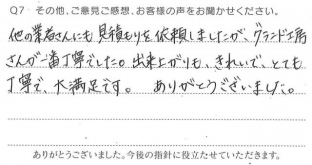 Q7 その他、ご意見ご感想、お客様の声をお聞かせください。
他の業者さんにも見積もりを依頼しましたが、グランド工房
さんが一番丁寧でした。出来上がりも、きれいで、とても
丁寧で、大満足です。 ありがとうございました。
ありがとうございました。今後の指針に役立たせていただきます。